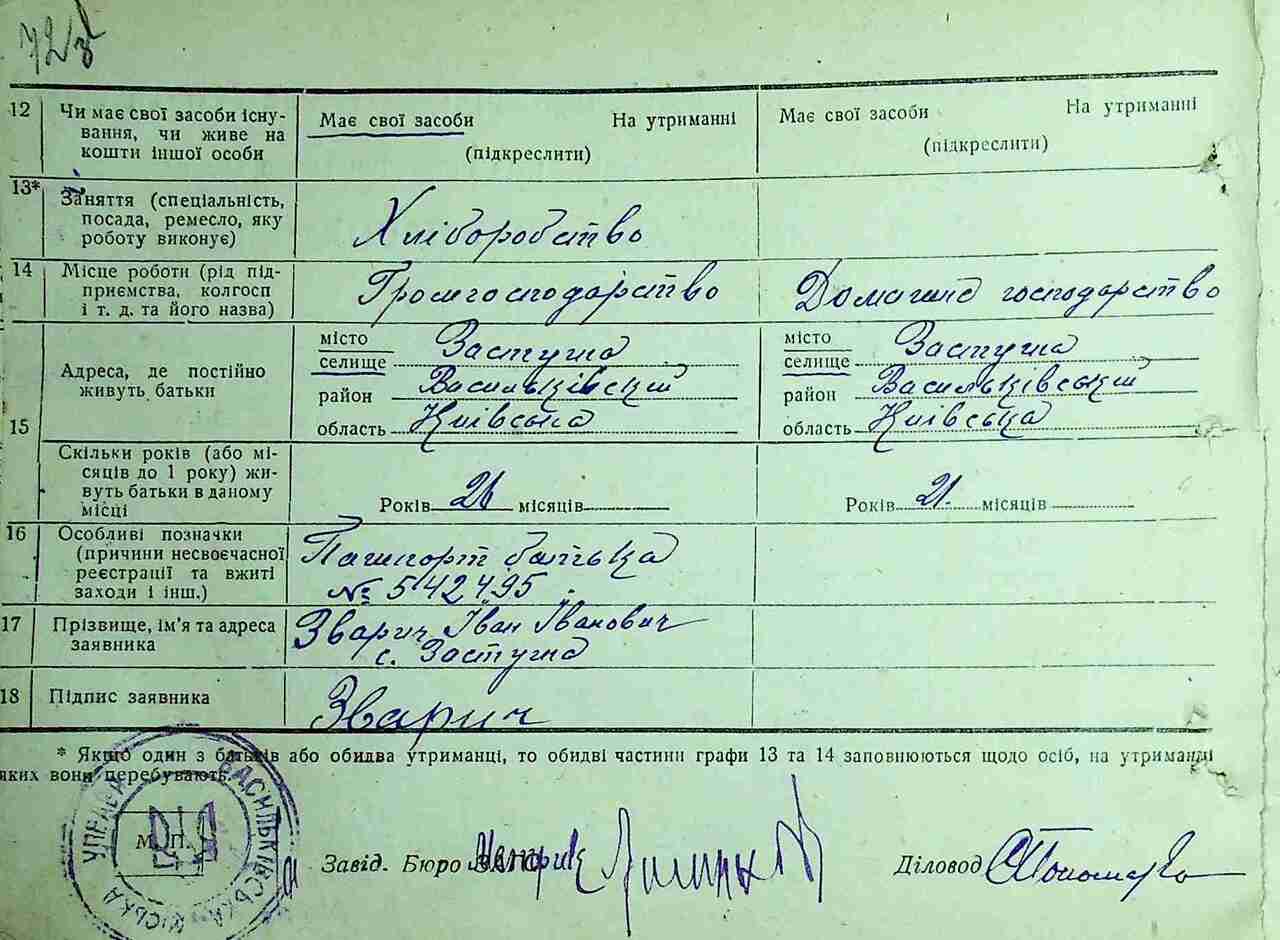 12 Чи має свої засоби існу-
вання, чи живе на
кошти іншої особи
Має свої засоби На утриманні
(підкреслити)
Має свої засоби На утриманні
(підкреслити)
13* Заняття (спеціальність,
посада, ремесло, яку
роботу виконує)
Хліборобство
14 Місце роботи (рід під-
приємства, колгосп
і т. д. та його назва)
Громгосподарство
Домашнє господарство
15
Адреса, де постійно
живуть батьки
місто
селище Застугна
район Васильківский
область Київська
місто
селище Застугна
район Васильківський
область Київська
Скільки років (або мі-
сяців до 1 року) жи-
вуть батьки в даному
місці
Років 26 місяців
Років 21. місяців
16 Особливі позначки
(причини несвоєчасної
реєстрації та вжиті
заходи і інш.)
Пашпорт батька
№ 542495.
17 Прізвище, ім'я та адреса
заявника
Зварич Іван Іванович
с. Застугна
18 Підпис заявника
Зварич
* Якщо один з батьків або обидва утриманці, то обидві частини графи 13 та 14 заповнюються щодо осіб, на утриманні
яких вони перебувають.
ВАСИЛЬКІВСЬКА МІСЬКА УПРАВА
М. П.
Завід. Бюро ЗАГС
Діловод Пономар